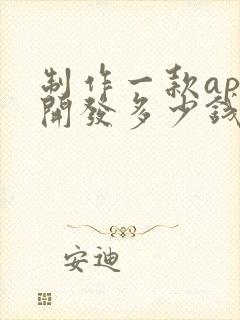 制作一款ap
開發多少錢
安迪